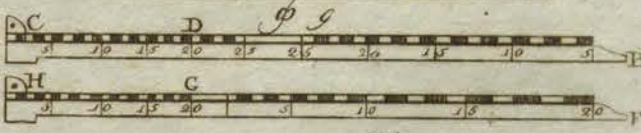 C D φ g
5 10 15 20 25 25 20 15 10 5 P
H G
5 10 15 20 5 10 15 20